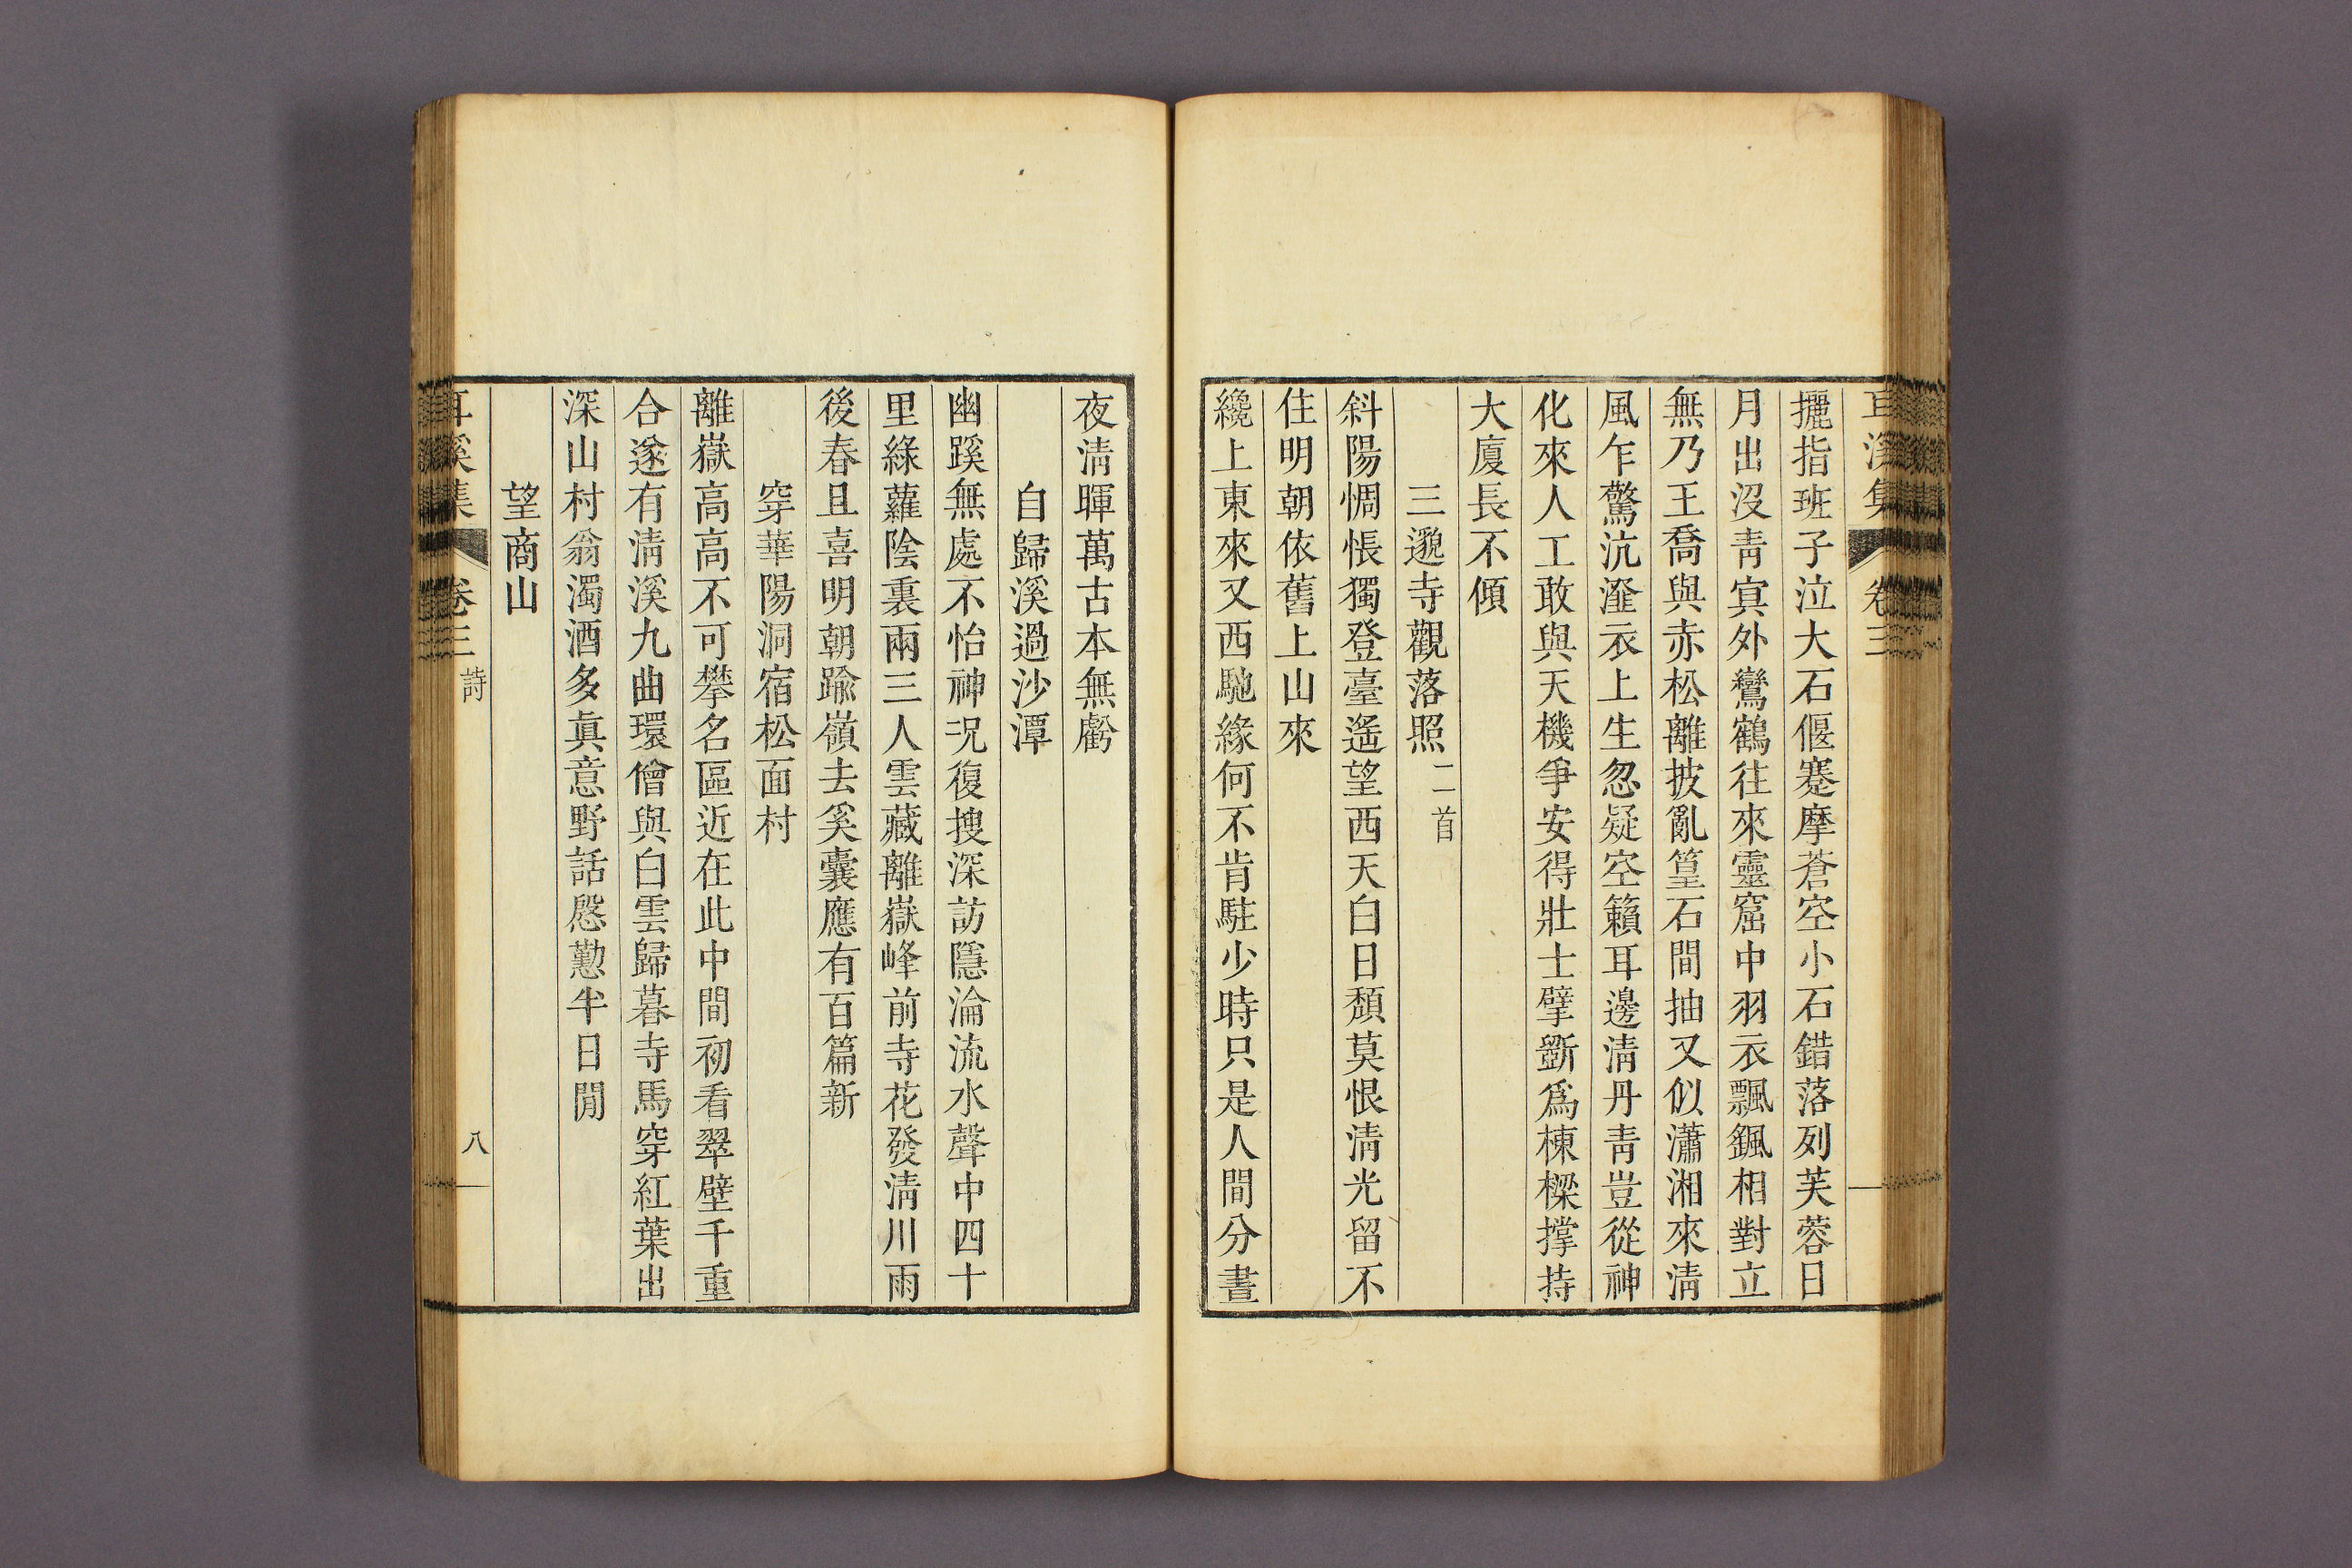 耳溪集 卷三
攦指班子泣大石偃蹇摩蒼空小石錯落列芙蓉日
月出沒靑冥外鸞鶴往來靈窟中羽衣飄颻相對立
無乃王喬與赤松離披亂篁石間抽又似瀟湘來淸
風乍驚沆瀣衣上生忽疑空籟耳邊淸丹靑豈從神
化來人工敢與天機爭安得壯士擘斷爲棟樑撑持
大廈長不傾
三邈寺觀落照二首
斜陽惆悵獨登臺遙望西天白日頹莫恨淸光留不
住明朝依舊上山來
纔上東來又西馳緣何不肯駐少時只是人間分晝
夜淸暉萬古本無虧
自歸溪過沙潭
幽蹊無處不怡神况復搜深訪隱淪流水聲中四十
里綠蘿陰裏兩三人雲藏離嶽峰前寺花發淸川雨
後春且喜明朝踰嶺去奚囊應有百篇新
穿華陽洞宿松面村
離嶽高高不可攀名區近在此中間初看翠壁千重
合遂有淸溪九曲環僧與白雲歸暮寺馬穿紅葉出
深山村翁濁酒多眞意野話慇懃半日閒
望商山
耳溪集 卷三 詩 八